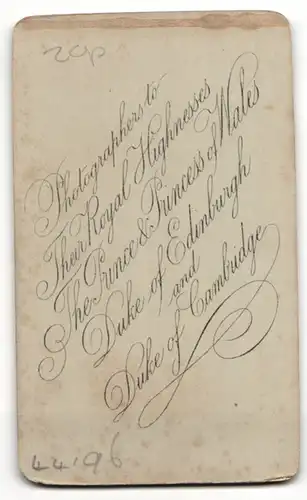 20p
Photographers to
Their Royal Highnesses
The Prince & Princess of Wales
Duke of Edinburgh
and
Duke of Cambridge
44.96